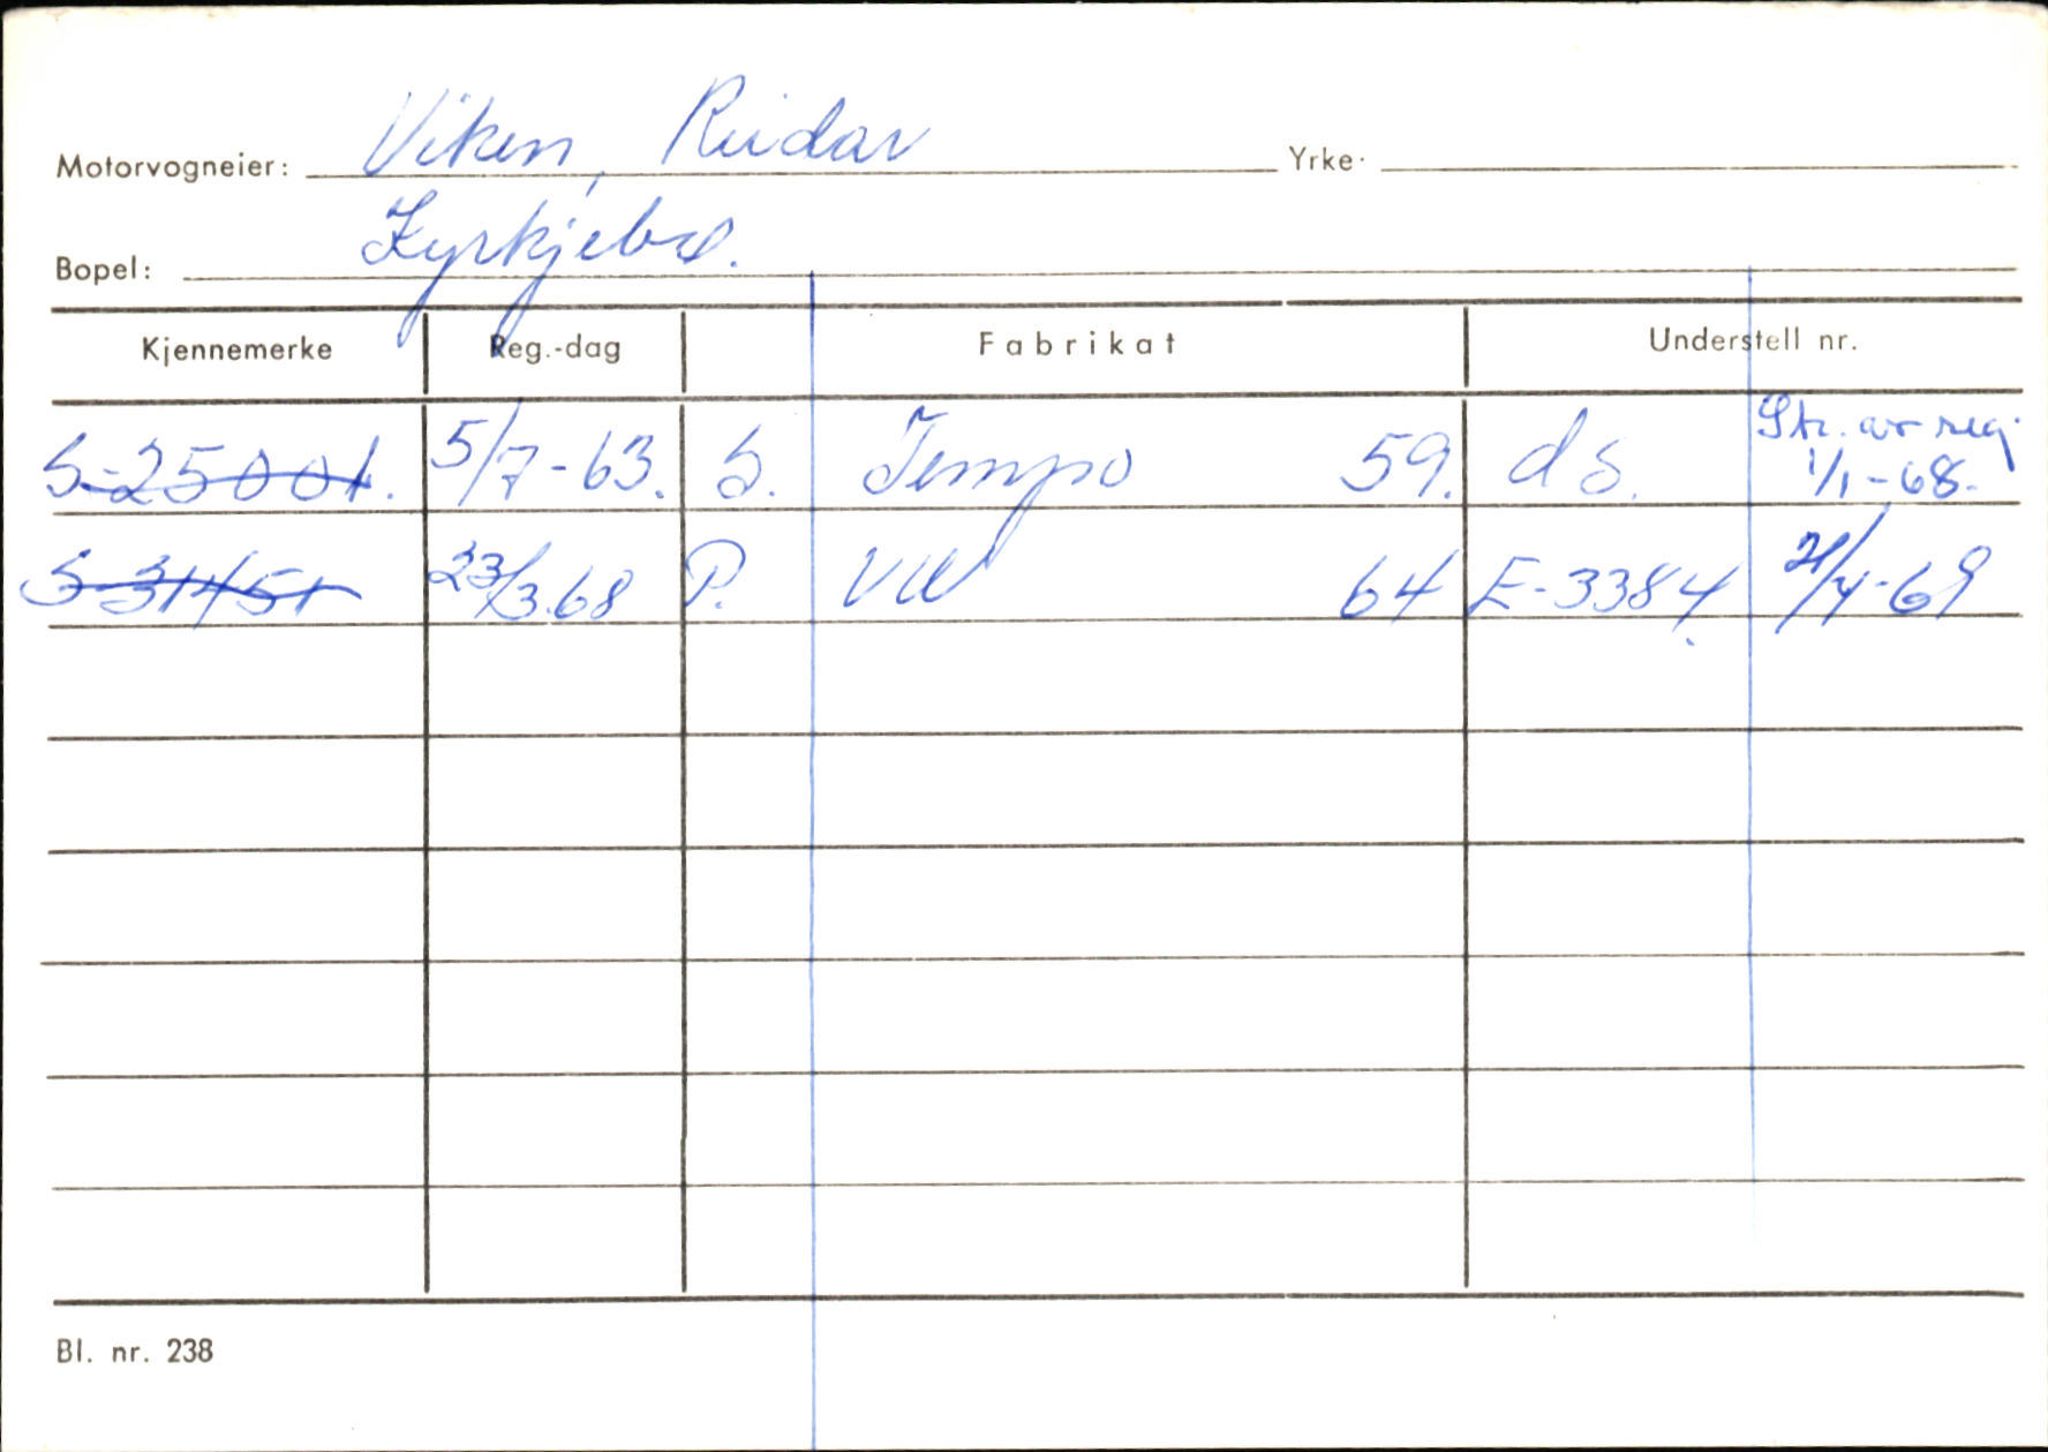 Motorvogneier: Viken, Reidar Yrke.
Bopel: Kyrkjebø.
Kjennemerke Reg.-dag Fabrikat Understell nr.
S-25001. 5/7-63. S. Tempo 59. d s. Str. av reg. 1/1-68.
S-31451 23/3.68 P. VW 64 E-3384. 21/4-69
Bl. nr. 238